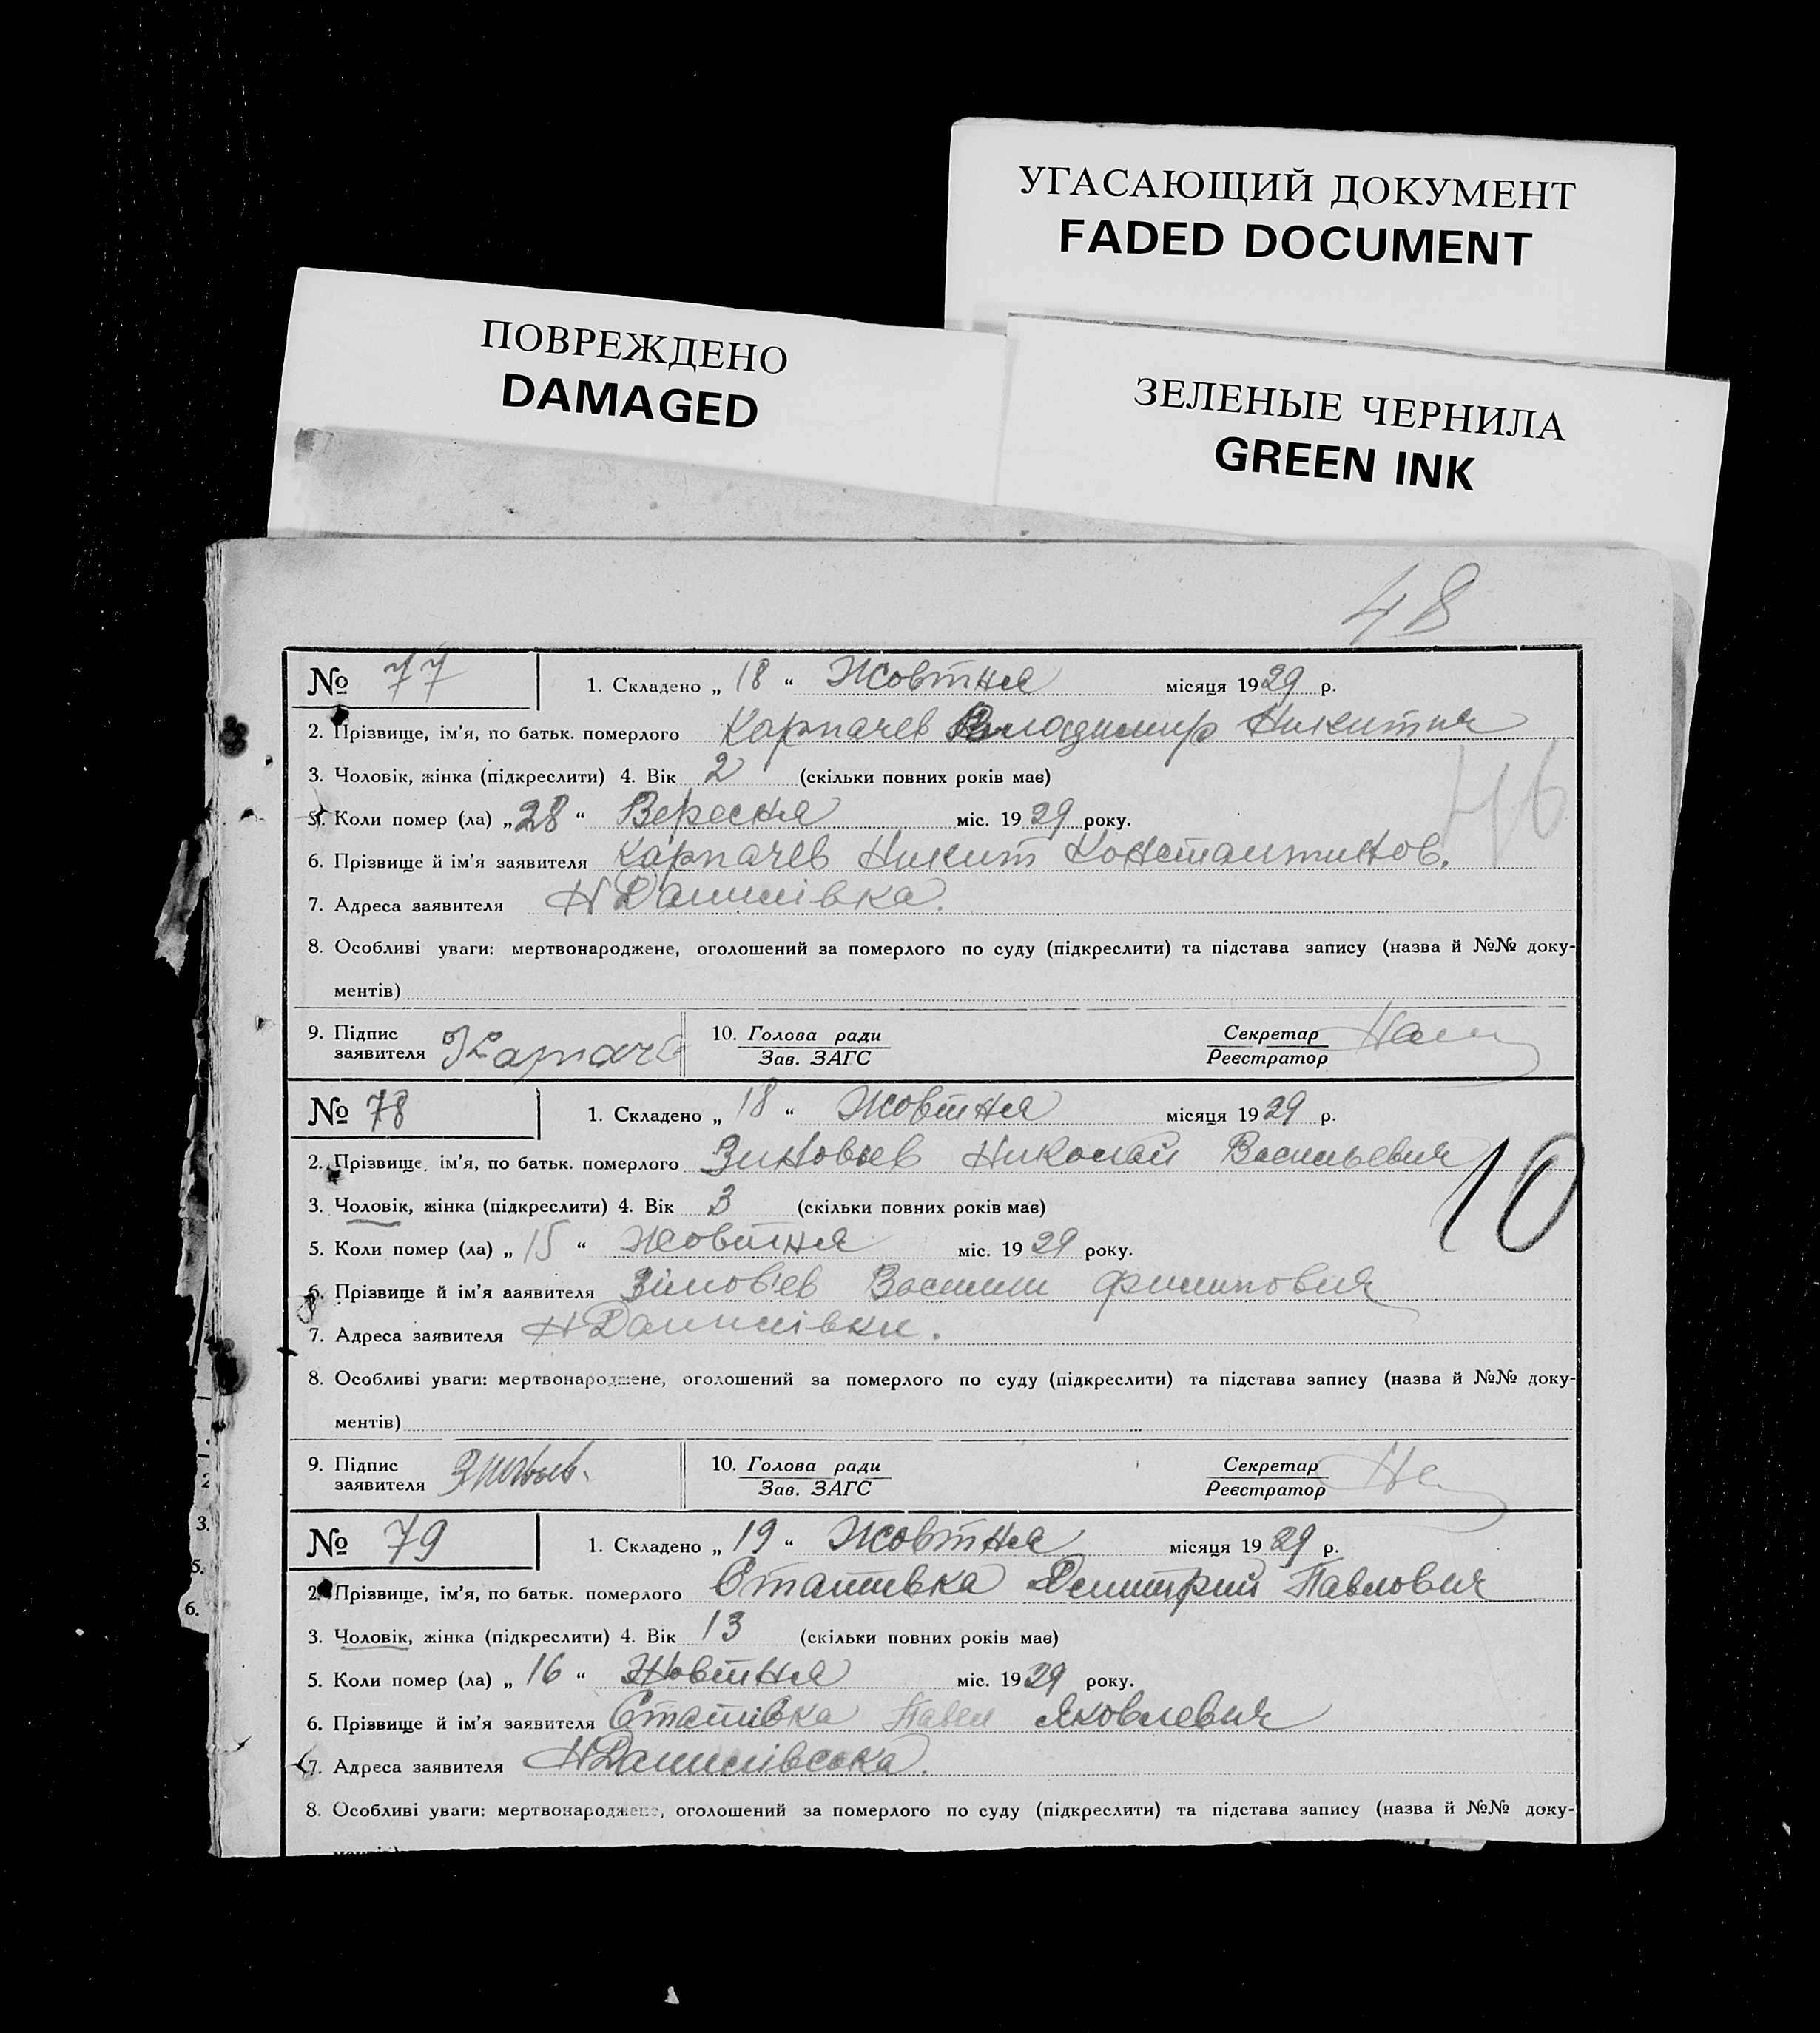 УГАСАЮЩИЙ ДОКУМЕНТ
FADED DOCUMENT
ПОВРЕЖДЕНО
DAMAGED
ЗЕЛЕНЫЕ ЧЕРНИЛА
GREEN INK
48
№ 77 1. Складено „ 18 “ Жовтня місяця 1929 р.
2. Прізвище, ім'я, по батьк. померлого Карпачев Владимир Никитич
3. Чоловік, жінка (підкреслити) 4. Вік 2 (скільки повних років має)
46
5. Коли помер (ла) „ 28 “ Вересня міс. 1929 року.
6. Прізвище й ім'я заявителя Карпачев Никит Константинов.
7. Адреса заявителя Н Данилівка.
8. Особливі уваги: мертвонароджене, оголошений за померлого по суду (підкреслити) та підстава запису (назва й №№ доку-
ментів)
9. Підпис заявителя 10. Голова ради Секретар
Зав. ЗАГС Реєстратор
№ 78 1. Складено „ 18 “ Жовтня місяця 1929 р.
2. Прізвище, ім'я, по батьк. померлого Зиновьев Николай Васильевич
10
3. Чоловік, жінка (підкреслити) 4. Вік 3 (скільки повних років має)
5. Коли помер (ла) „ 15 “ Жовтня міс. 1929 року.
6. Прізвище й ім'я заявителя Зінов'ев Василий Филипович
7. Адреса заявителя Н Данилівки.
8. Особливі уваги: мертвонароджене, оголошений за померлого по суду (підкреслити) та підстава запису (назва й №№ доку-
ментів)
9. Підпис заявителя 10. Голова ради Секретар
Зав. ЗАГС Реєстратор
№ 79 1. Складено „ 19 “ Жовтня місяця 1929 р.
2. Прізвище, ім'я, по батьк. померлого Стативка Демитрий Павлович
3. Чоловік, жінка (підкреслити) 4. Вік 13 (скільки повних років має)
5. Коли помер (ла) „ 16 “ Жовтня міс. 1929 року.
6. Прізвище й ім'я заявителя Статівка Павел Яковлевич
7. Адреса заявителя Н Данилівська.
8. Особливі уваги: мертвонароджене, оголошений за померлого по суду (підкреслити) та підстава запису (назва й №№ доку-